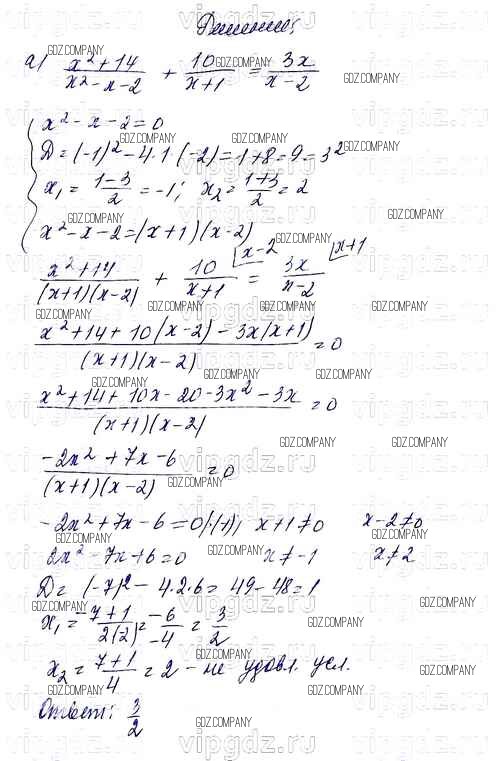 Решение:
а) (x²+14)/(x²-x-2) + 10/(x+1) = 3x/(x-2)
x²-x-2=0
D=(-1)²-4·1·(-2)=1+8=9=3²
x₁=(1-3)/2=-1; x₂=(1+3)/2=2
x²-x-2=(x+1)(x-2)
(x²+14)/((x+1)(x-2)) + 10/(x+1) [x-2 = 3x/(x-2) [x+1
(x²+14+10(x-2)-3x(x+1))/((x+1)(x-2))=0
(x²+14+10x-20-3x²-3x)/((x+1)(x-2))=0
(-2x²+7x-6)/((x+1)(x-2))=0
-2x²+7x-6=0 |·(-1); x+1≠0 x-2≠0
2x²-7x+6=0 x≠-1 x≠2
D=(-7)²-4·2·6=49-48=1
x₁=(-7+1)/(2(2))=(-6)/(-4)=3/2
x₂=(7+1)/4=2 - не удовл. усл.
Ответ: 3/2
GDZ.COMPANY
vipgdz.ru